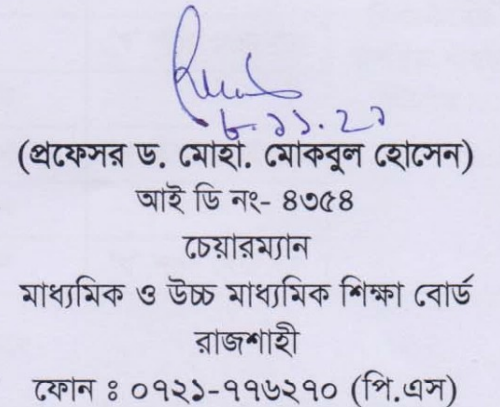 ৮.১১.২১
(প্রফেসর ড. মোহা. মোকবুল হোসেন)
আই ডি নং- ৪৩৫৪
চেয়ারম্যান
মাধ্যমিক ও উচ্চ মাধ্যমিক শিক্ষা বোর্ড
রাজশাহী
ফোন ঃ ০৭২১-৭৭৬২৭০ (পি.এস)